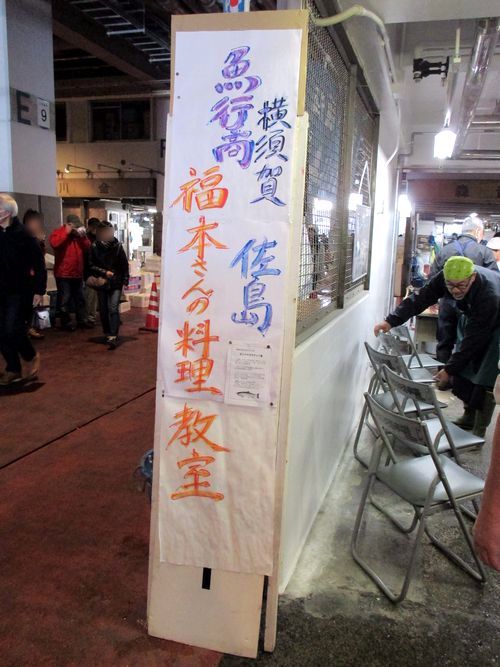 横須賀 佐島
魚行商
福本さんの料理
教室
E
9